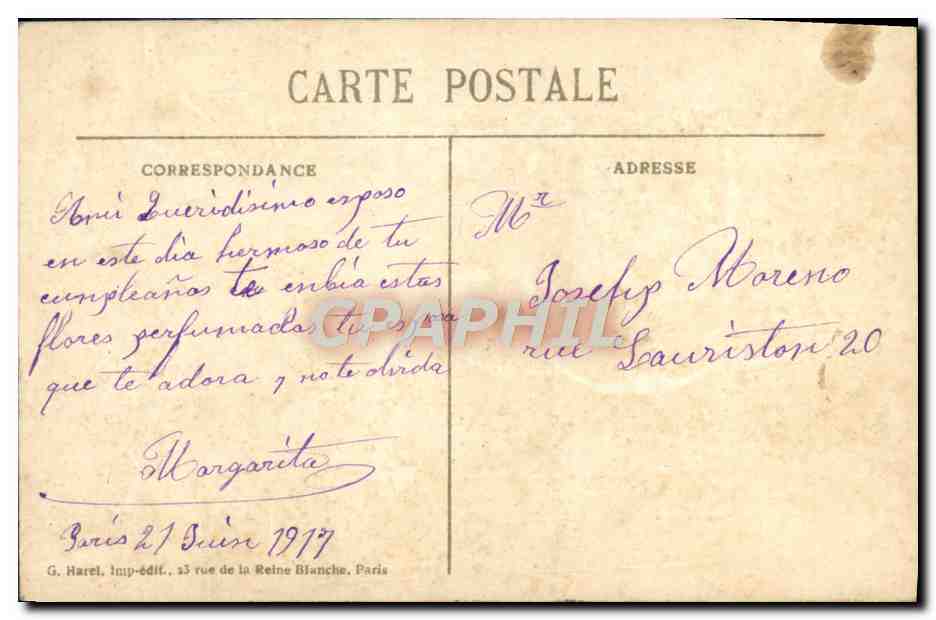 CARTE POSTALE
CORRESPONDANCE
A mi Queridisimo esposo
en este dia hermoso de tu
cumpleaños te enbia estas
flores perfumadas tu esposa
que te adora y no te olvida
Margarita
Paris 21 Juin 1917
G. Harel, Imp-édit., 23 rue de la Reine Blanche, Paris
ADRESSE
Mr
Josefp Moreno
rue Lauriston 20
CPAPHIL